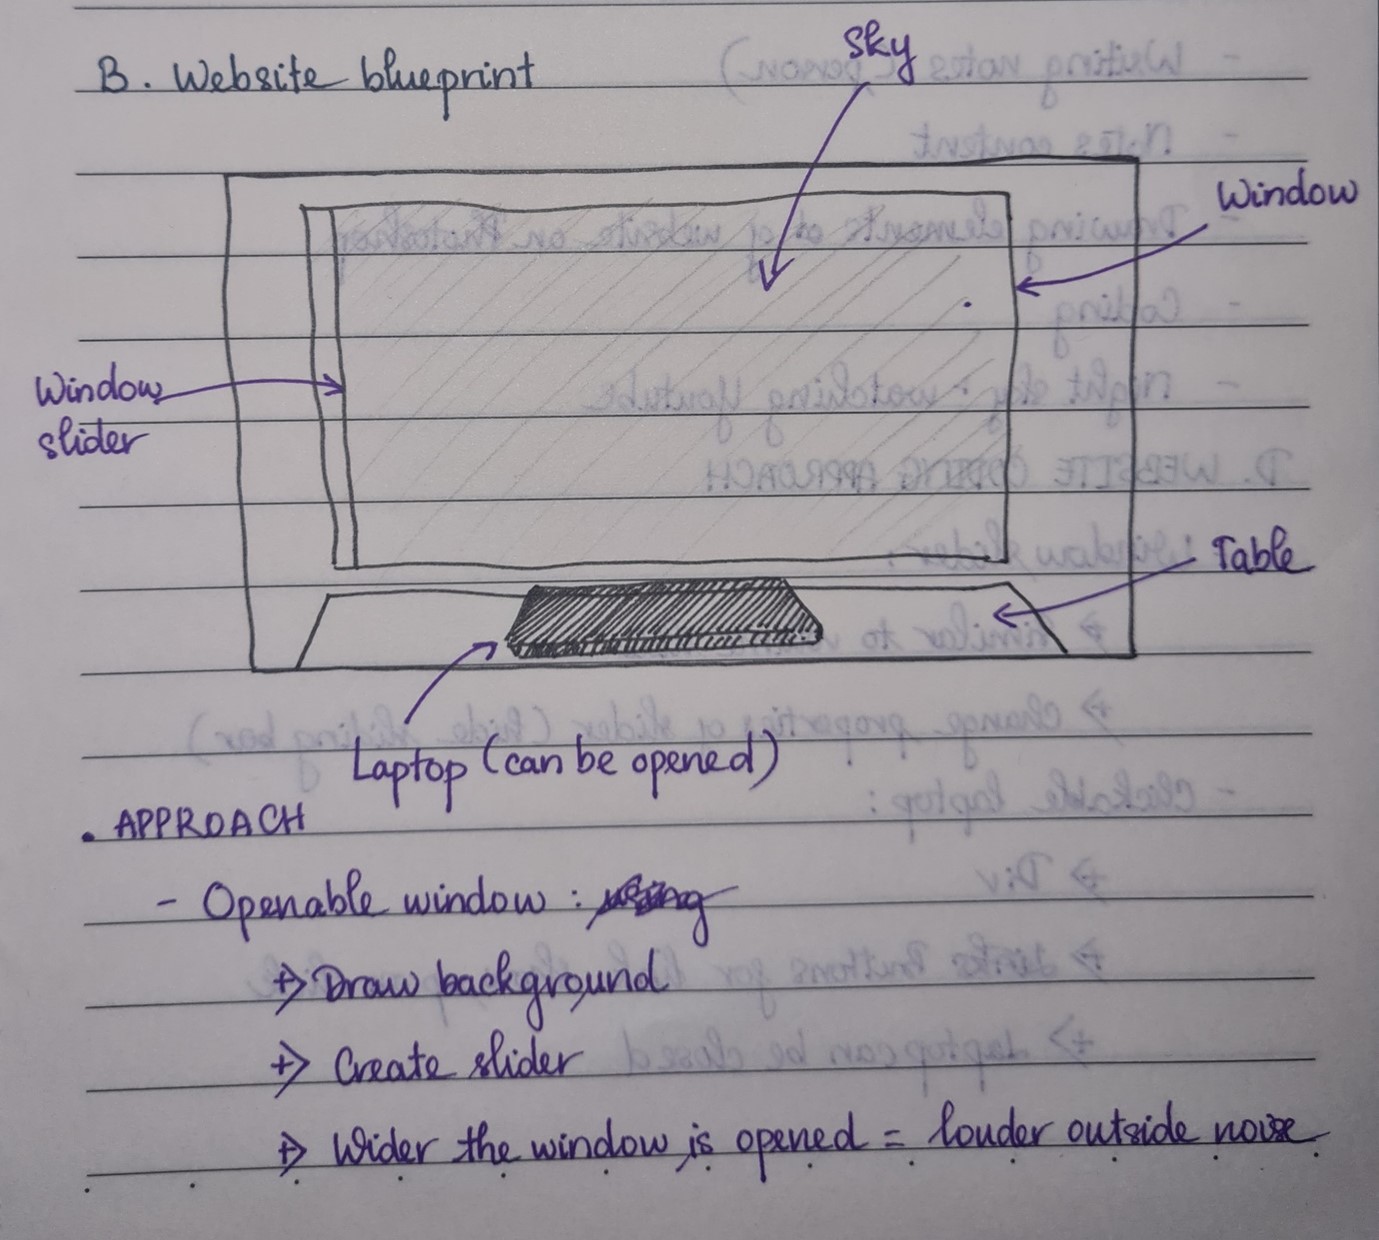 B. Website blueprint
Sky
Window
Window
slider
Table
Laptop (can be opened)
. APPROACH
- Openable window :
+> Draw background
+> Create slider
+> Wider the window is opened = louder outside noise